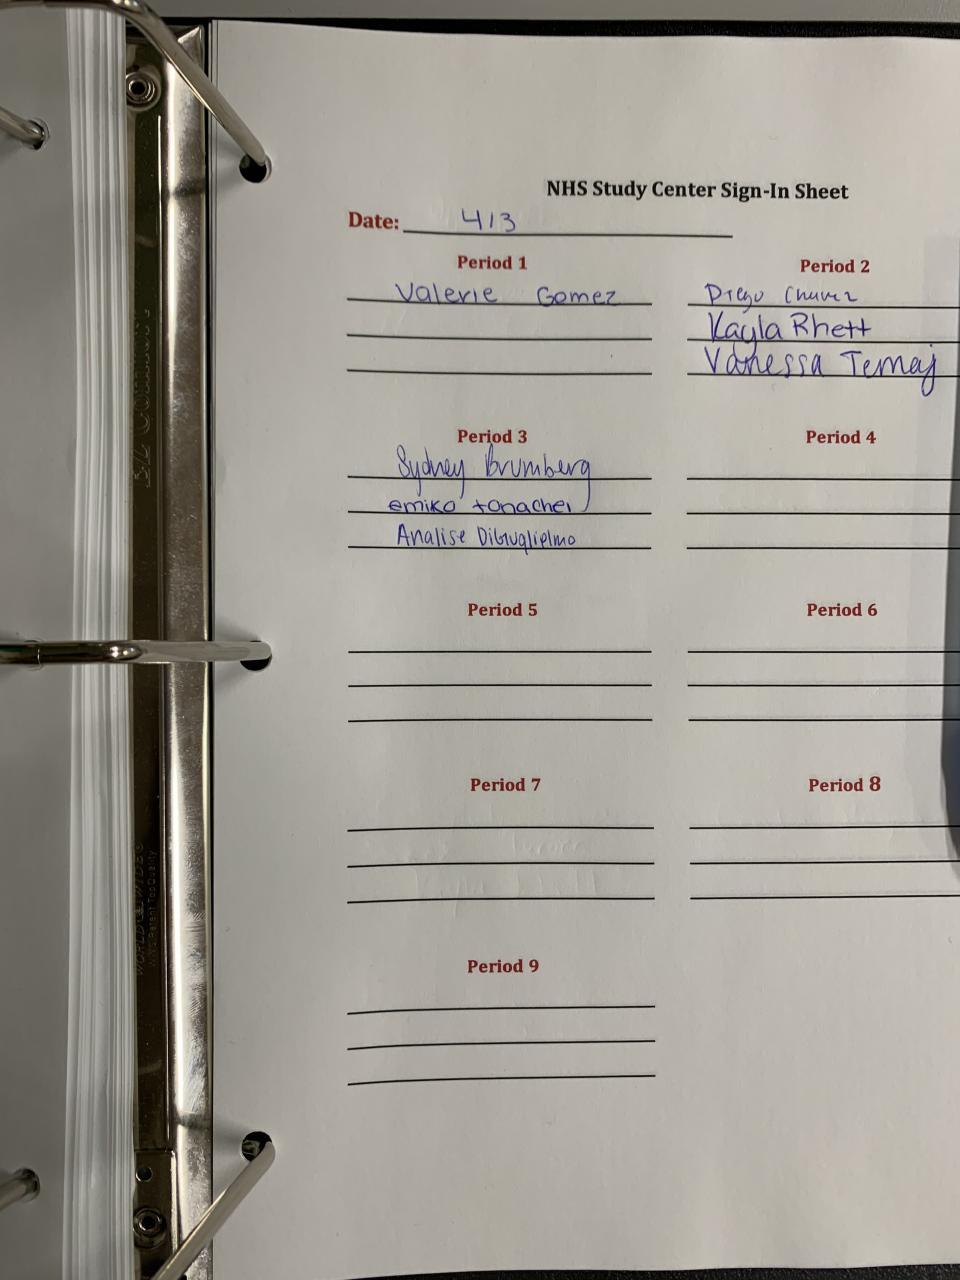 NHS Study Center Sign-In Sheet
Date: 4/3
Period 1
Valerie Gomez
Period 2
Diego Chavez
Kayla Rhett
Vanessa Temaj
Period 3
Sydney Brumberg
emiko tonachei
Analise DiGuglielmo
Period 4
Period 5
Period 6
Period 7
Period 8
Period 9